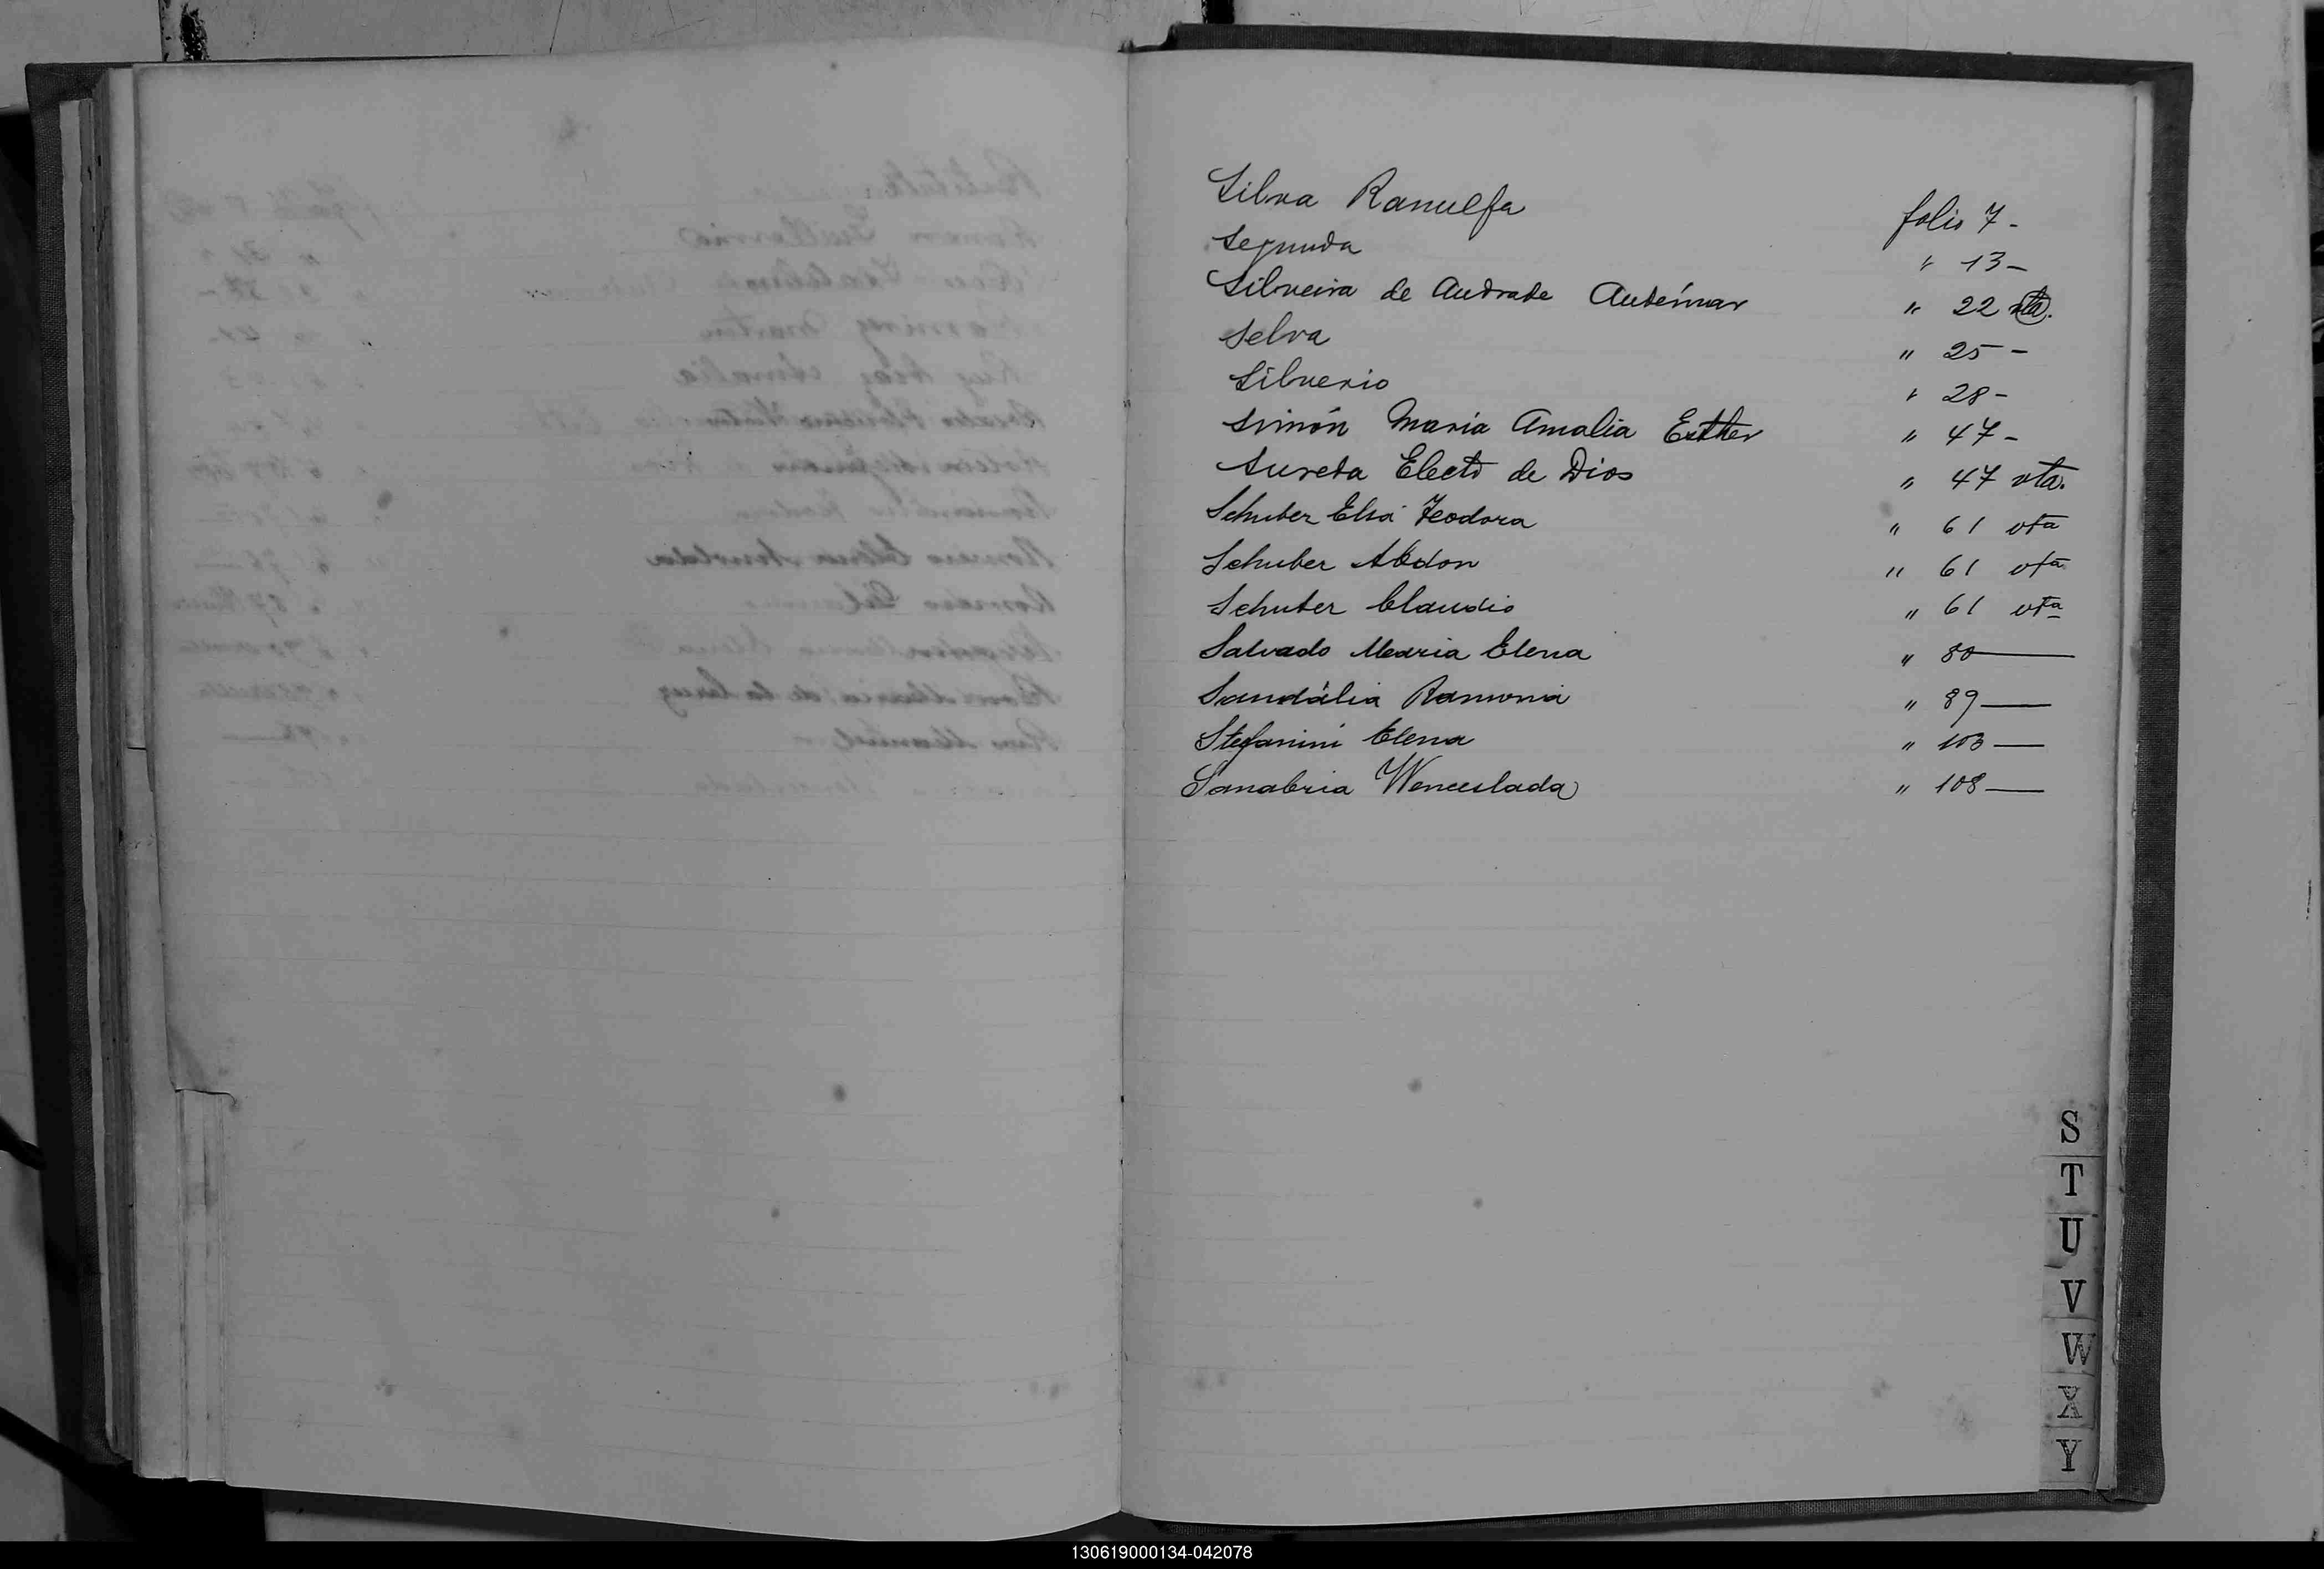 Silva Ranulfa folio 7 -
Segunda " 13 -
Silveira de Andrade Audémar " 22 vta.
Selva " 25 -
Silverio " 28 -
Simón María Amalia Esther " 47 -
Sureda Electo de Dios " 47 vta.
Schuber Elsa Teodora " 61 vta
Schuber Abdon " 61 vta
Schuber Claudio " 61 vta
Salvado María Elena " 80 —
Sandália Ramona " 89 —
Stefanini Elena " 103 —
Sanabria Wenceslada " 108 —
S
T
U
V
W
X
Y
130619000134-042078